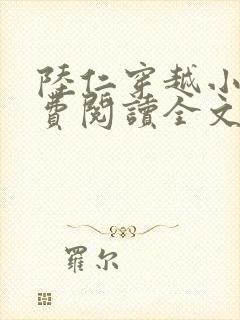 陸仁穿越小
費閱讀全文
羅尔